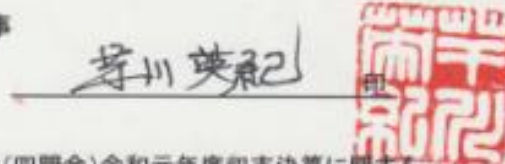 事
芋川 英紀
印
令和元年度収支決算に関する